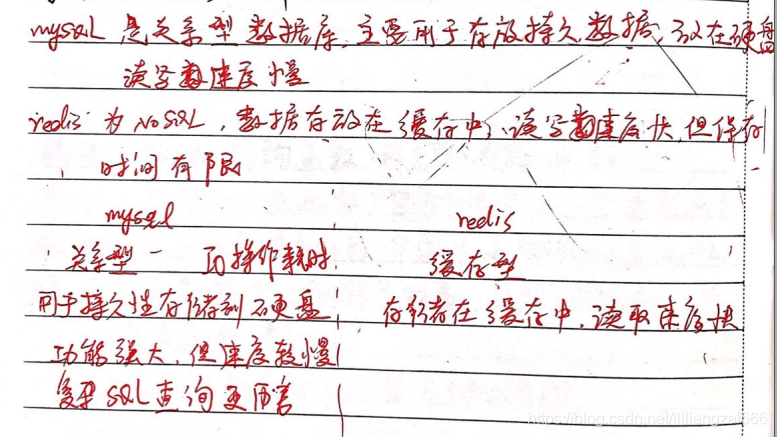 mysql 是关系型数据库,主要用于存放持久数据,放在硬盘
读写速度慢
redis 为 NoSQL,数据存放在缓存中,读写速度快,但保存
时间有限
mysql redis
关系型 IO操作耗时 缓存型
用于持久性存储到硬盘 存储在缓存中,读取速度快
功能强大,但速度较慢
复杂SQL查询更厉害
https://blog.csdn.net/lllliangzai666